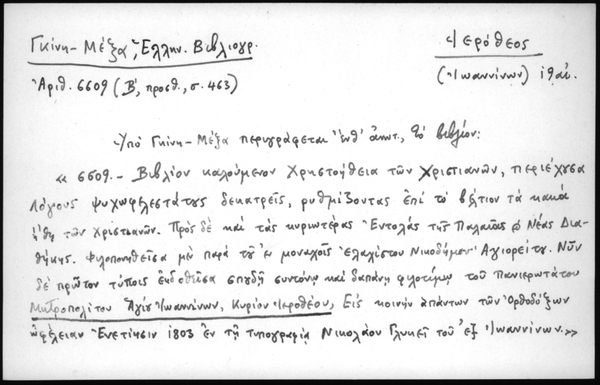 Γκίνη-Μέξα, Ἑλλην. Βιβλιογρ.
Ἱερόθεος
Ἀριθ. 6609 (Β', προσθ., σ. 463)
(Ἰωαννίνων) 19 αἰ.
Ὑπό Γκίνη-Μέξα περιγράφεται ἐνθ' ἀνωτ., τό βιβλίον:
« 6609.- Βιβλίον καλούμενον Χρηστοήθεια τῶν Χριστιανῶν, περιέχουσα
λόγους ψυχωφελεστάτους δεκατρεῖς, ρυθμίζοντας ἐπί τό βέλτιον τά κακά
ἤθη τῶν Χριστιανῶν. Πρός δέ καί τάς κυριωτέρας Ἐντολάς τῆς Παλαιᾶς & Νέας Δια-
θήκης. Φιλοπονηθεῖσα μέν παρά τοῦ ἐν μοναχοῖς ἐλαχίστου Νικοδήμου Ἁγιορείτου. Νῦν
δέ πρῶτον τύποις ἐκδοθεῖσα σπουδῇ συντόνῳ καί δαπάνῃ φιλοτίμῳ τοῦ Πανιερωτάτου
Μητροπολίτου Ἁγίου Ἰωαννίνων, Κυρίου Ἱεροθέου, Εἰς κοινήν ἁπάντων τῶν Ὀρθοδόξων
ὠφέλειαν Ἐνετίησιν 1803 ἐν τῇ τυπογραφίᾳ Νικολάου Γλυκεῖ τοῦ ἐξ Ἰωαννίνων.»